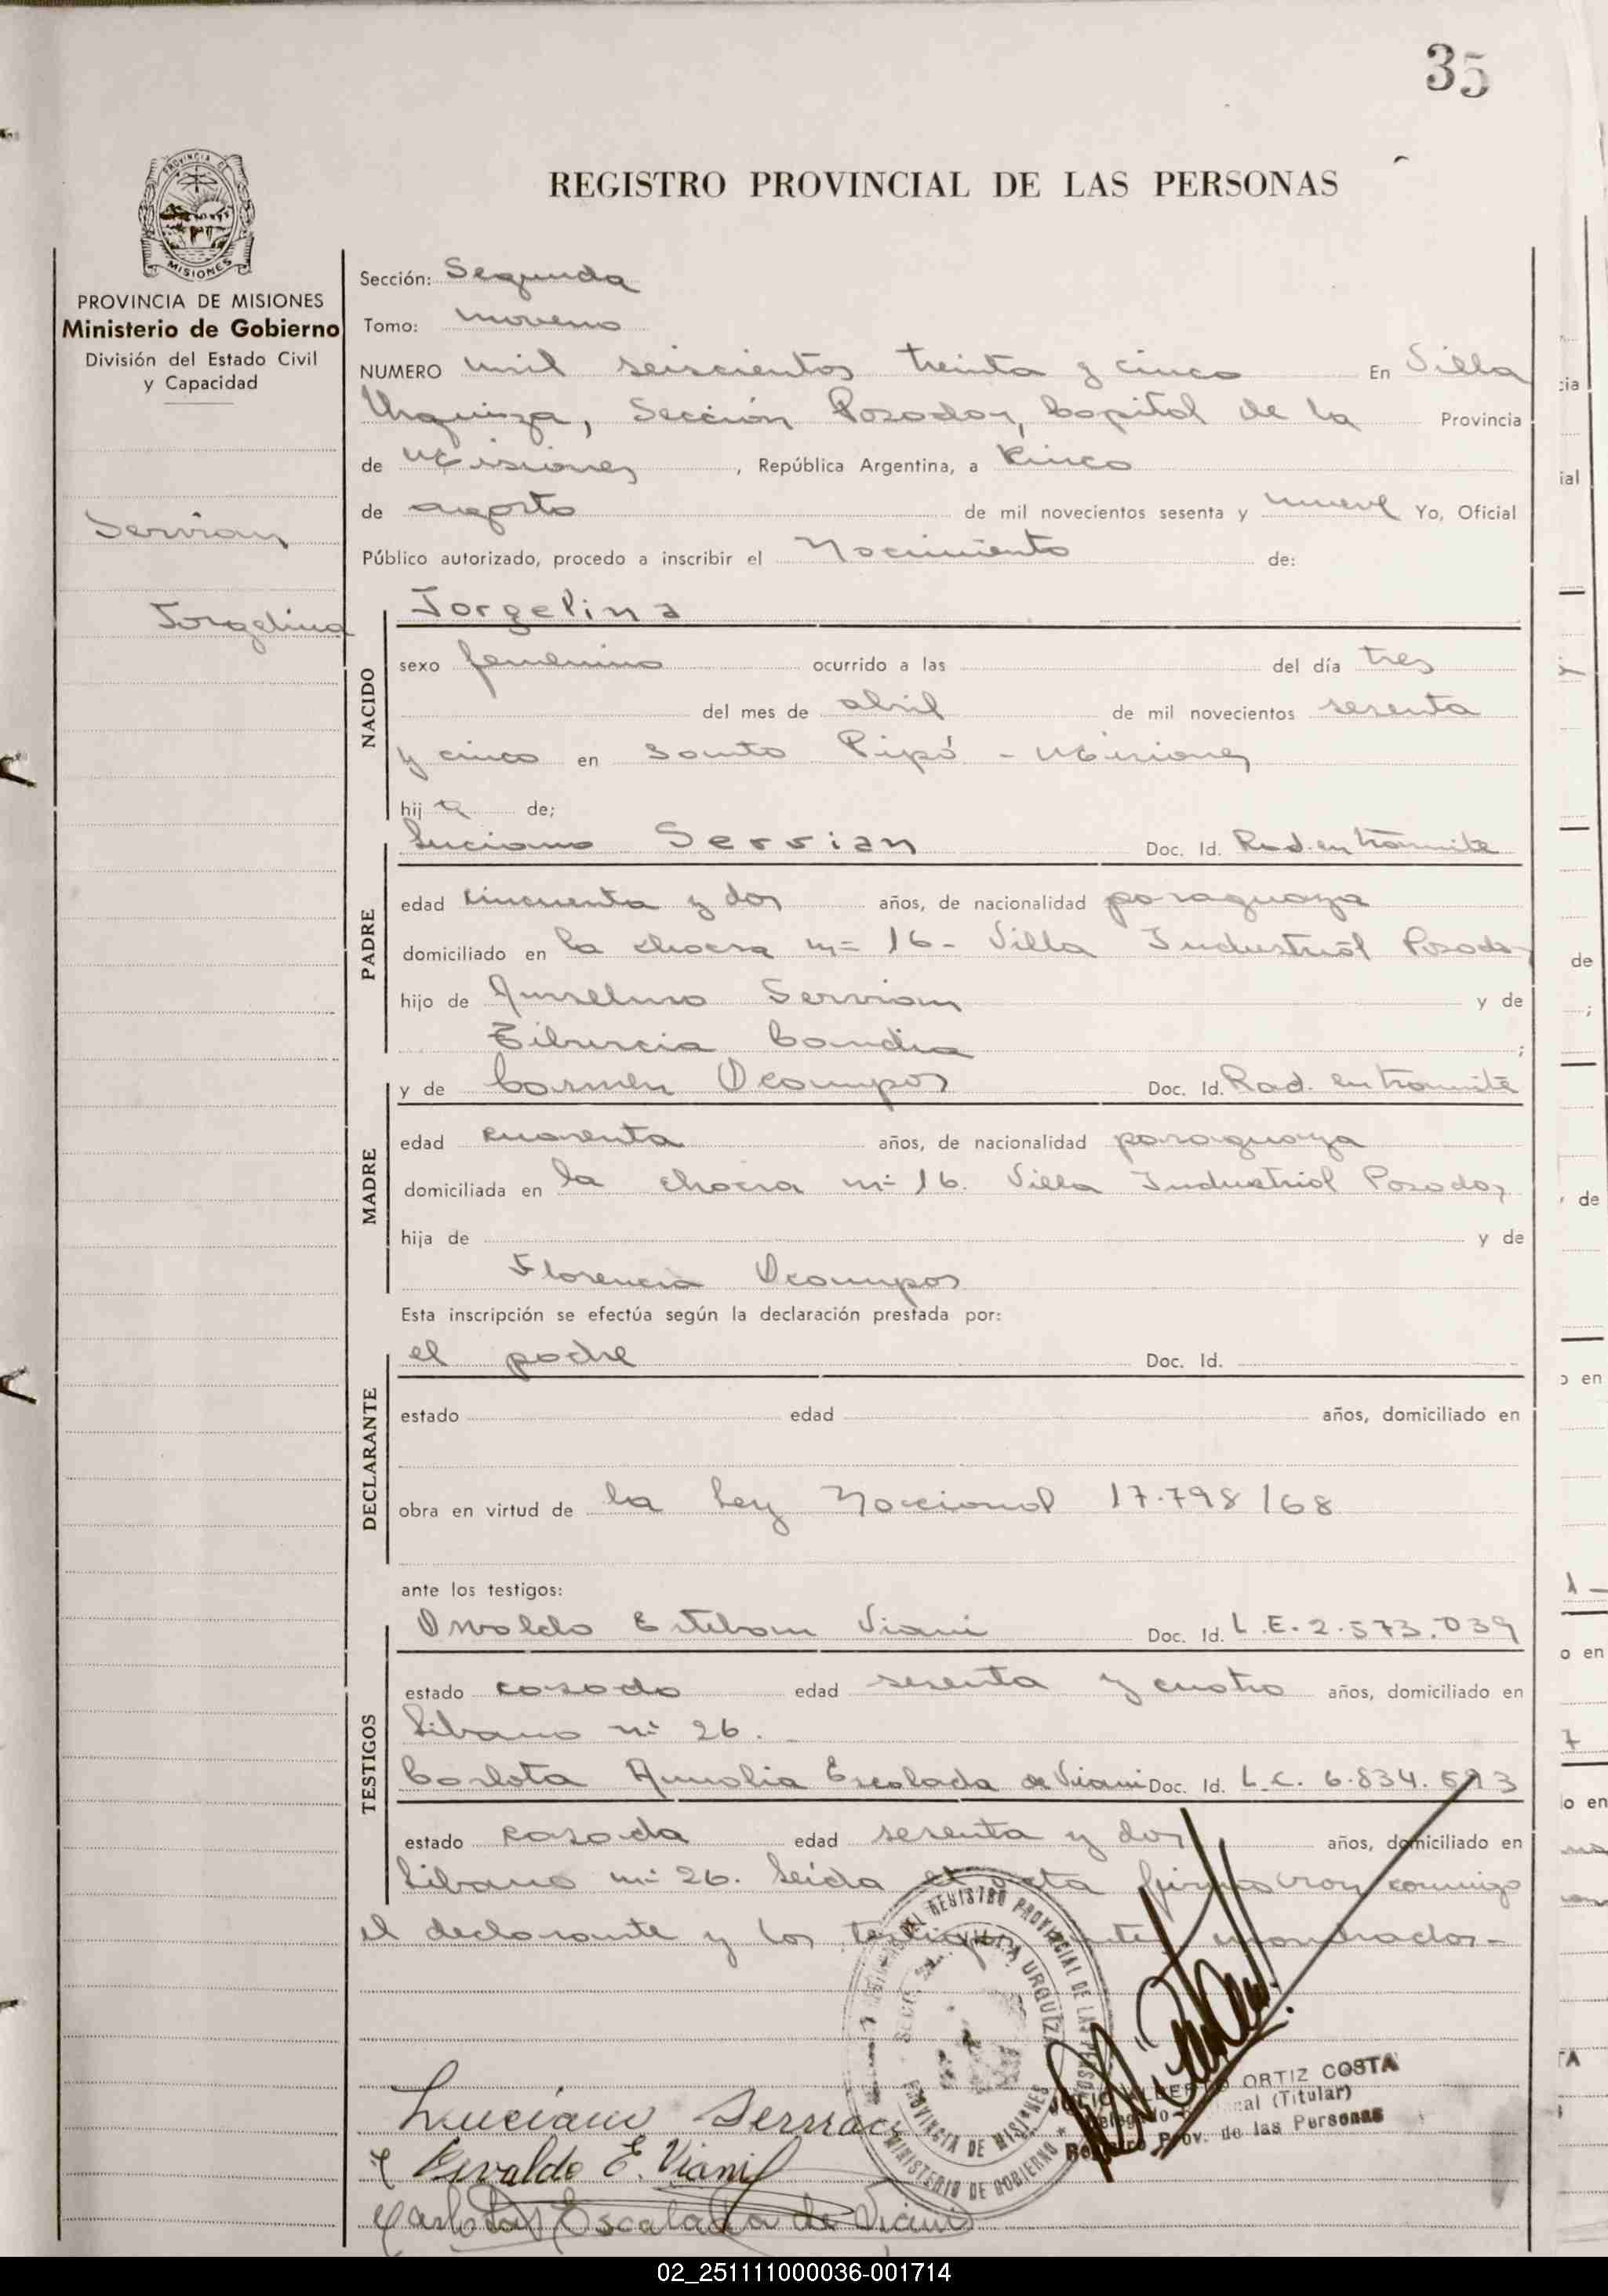 35
REGISTRO PROVINCIAL DE LAS PERSONAS
PROVINCIA DE MISIONES
Ministerio de Gobierno
División del Estado Civil
y Capacidad
Servian
Jorgelina
Sección: Segunda
Tomo: noveno
NUMERO mil seiscientos treinta y cinco En Villa
Urquiza, Sección Posadas, Capital de la Provincia
de Misiones, República Argentina, a Cinco
de agosto de mil novecientos sesenta y nueve Yo, Oficial
Público autorizado, procedo a inscribir el Nacimiento de:
NACIDO
Jorgelina
sexo femenino ocurrido a las del día tres
del mes de abril de mil novecientos sesenta
y cinco en Santo Pipó - Misiones
hija de;
PADRE
Luciano Servian Doc. Id. Rad. en tramite
edad Cincuenta y dos años, de nacionalidad paraguaya
domiciliado en la chacra nº 16 - Villa Industrial Posadas
hijo de Anselmo Servian y de
Tiburcia Candia ;
MADRE
y de Carmen Ocampos Doc. Id. Rad. en tramite
edad cuarenta años, de nacionalidad paraguaya
domiciliada en la chacra nº 16. Villa Industrial Posadas
hija de y de
Florencia Ocampos
Esta inscripción se efectúa según la declaración prestada por:
DECLARANTE
el padre Doc. Id.
estado edad años, domiciliado en
obra en virtud de la Ley Nacional 17.798/68
ante los testigos:
TESTIGOS
Osvaldo Esteban Viani Doc. Id. L.E. 2.573.039
estado casado edad sesenta y cuatro años, domiciliado en
Libano nº 26.
Carlota Amalia Escalada de Viani Doc. Id. L.C. 6.834.593
estado casada edad sesenta y dos años, domiciliado en
Libano nº 26. Leida el acta firma con conmigo
el declarante y los testigos antes nombrados.-
REGISTRO PROVINCIAL DE LAS PERSONAS
VILLA URQUIZA
PROVINCIA DE MISIONES
MINISTERIO DE GOBIERNO
ORTIZ COSTA
(Titular)
Prov. de las Personas
Luciano
Osvaldo E. Viani
Carlota Escalada de Viani
02_251111000036-001714